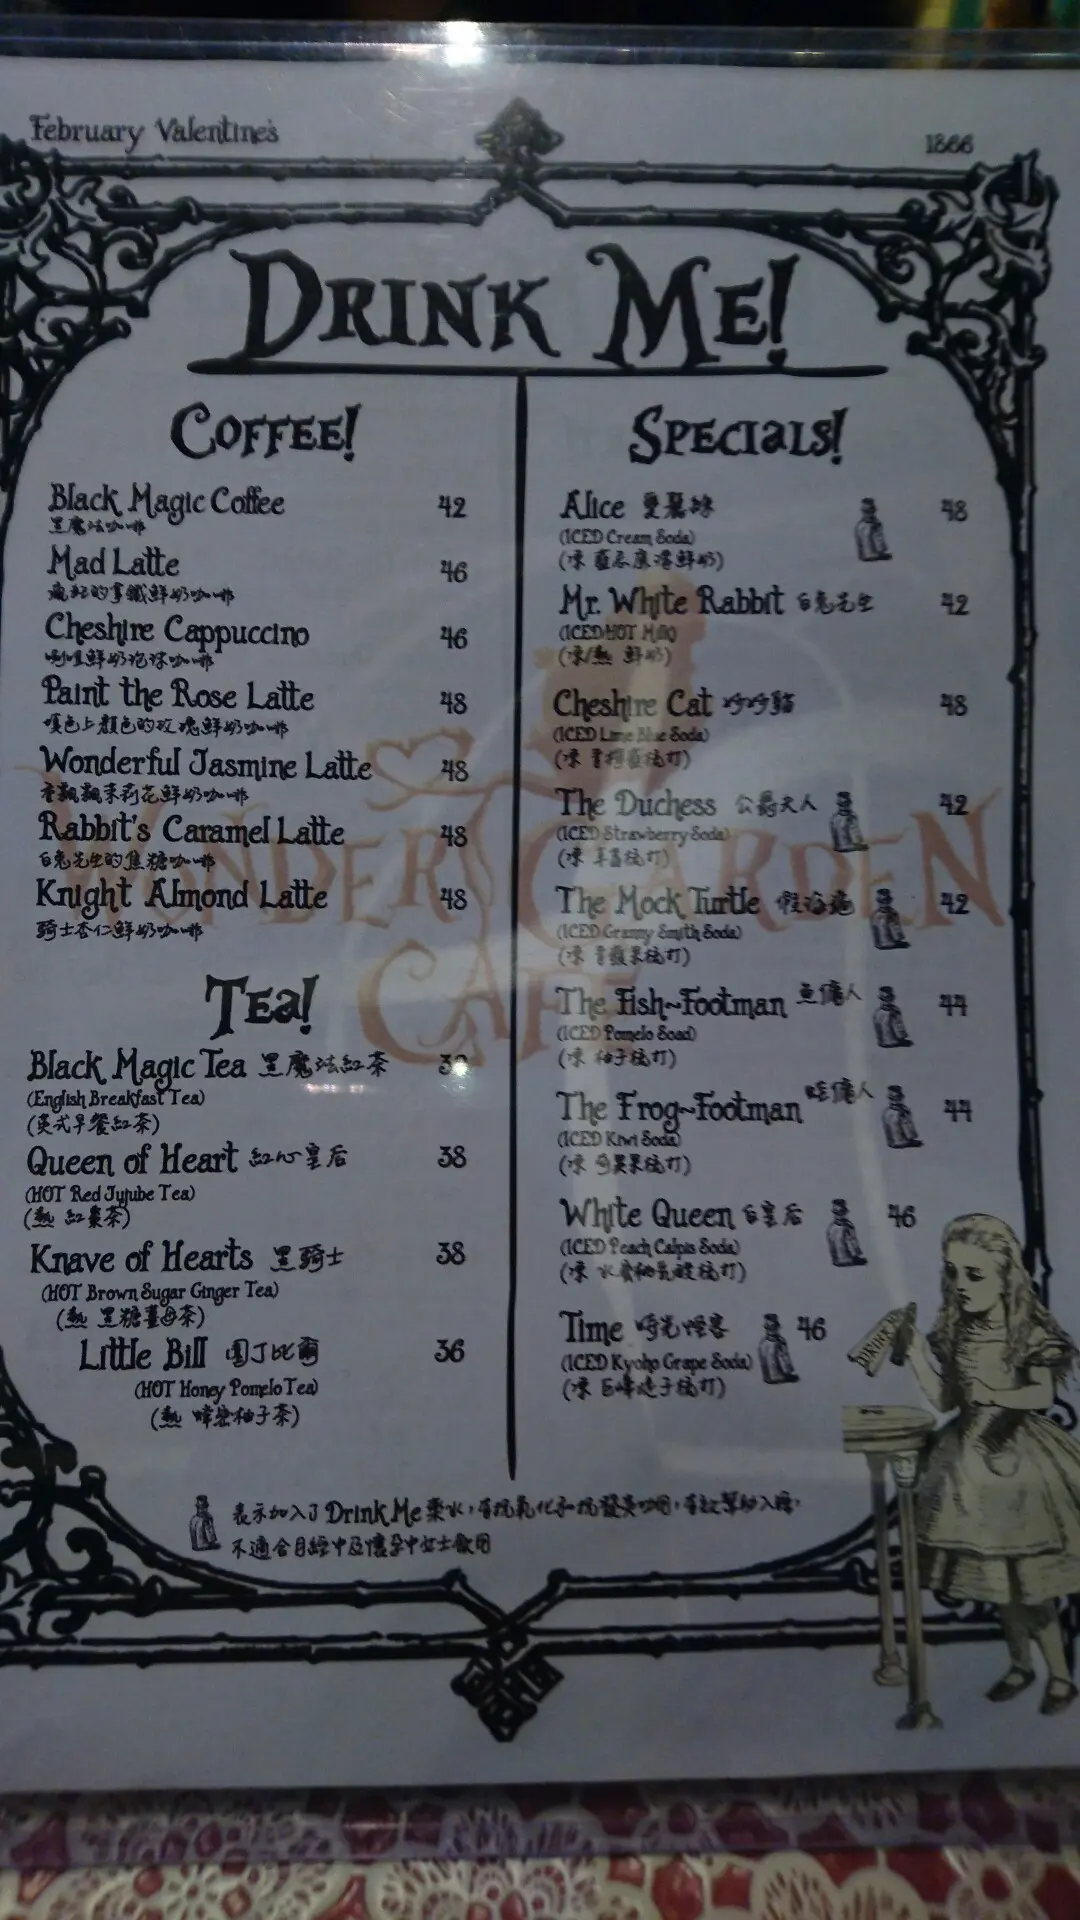 February Valentine's
1866
DRINK ME!
COFFEE!
Black Magic Coffee 42
黑魔法咖啡
Mad Latte 46
瘋狂的拿鐵鮮奶咖啡
Cheshire Cappuccino 46
鮮奶泡沫咖啡
Paint the Rose Latte 48
噴色上顏色的玫瑰鮮奶咖啡
Wonderful Jasmine Latte 48
香飄飄茉莉花鮮奶咖啡
Rabbit's Caramel Latte 48
白兔先生的焦糖咖啡
Knight Almond Latte 48
騎士杏仁鮮奶咖啡
TEA!
Black Magic Tea 黑魔法紅茶
(English Breakfast Tea)
(英式早餐紅茶)
Queen of Heart 紅心皇后 38
(HOT Red Jujube Tea)
(熱 紅棗茶)
Knave of Hearts 黑騎士 38
(HOT Brown Sugar Ginger Tea)
(熱 黑糖薑母茶)
Little Bill 園丁比爾 36
(HOT Honey Pomelo Tea)
(熱 蜂蜜柚子茶)
SPECIALS!
Alice 愛麗絲 48
(ICED Cream Soda)
(凍 鮮奶)
Mr. White Rabbit 白兔先生 42
(ICED/HOT Milk)
(凍/熱 鮮奶)
Cheshire Cat 吟吟貓 48
(ICED Lime Blue Soda)
(凍 青檸梳打)
The Duchess 公爵夫人 42
(ICED Strawberry Soda)
(凍 梳打)
The Mock Turtle 假海龜 42
(ICED Granny Smith Soda)
(凍 青蘋果梳打)
The Fish~Footman 魚傭人 44
(ICED Pomelo Soad)
(凍 柚子梳打)
The Frog~Footman 蛙傭人 44
(ICED Kiwi Soda)
(凍 奇異果梳打)
White Queen 白皇后 46
(ICED Peach Calpis Soda)
(凍 水蜜桃乳酸梳打)
Time 時光怪客 46
(ICED Kyoho Grape Soda)
(凍 巨峰提子梳打)
WONDER GARDEN
CAFE
DRINK
表示加入了Drink Me藥水,有抗氧化和抗發炎功用,有效幫助入睡,
不適合月經中及懷孕中女士飲用